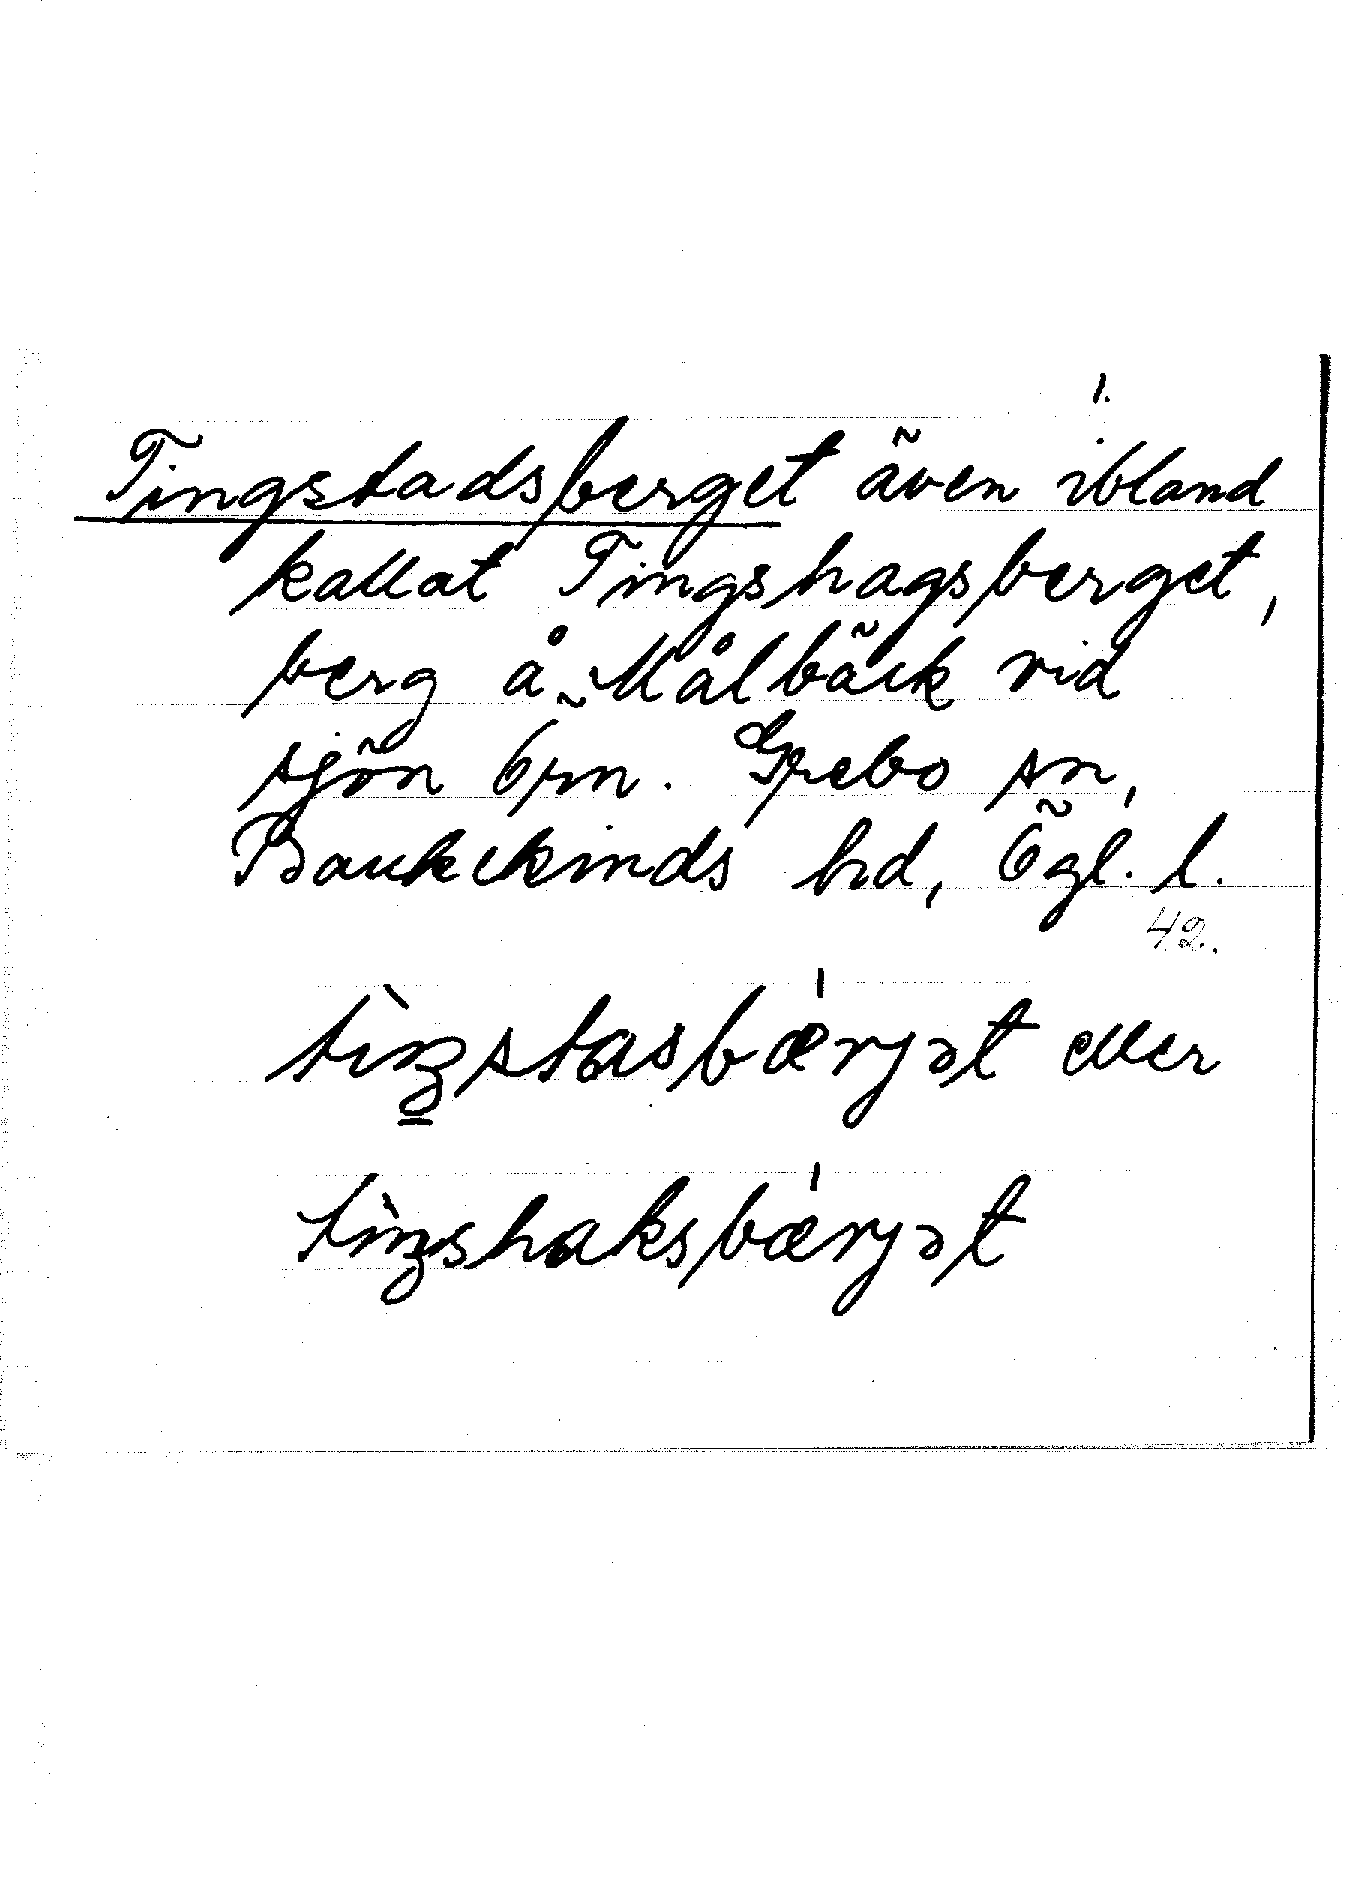 1.
Tingstadsberget även ibland
kallat Tingshagsberget,
berg å Målbäck vid
sjön Örn. Grebo sn,
Bankekinds hd, Ögl. l.
42.
tìŋstasbæ̍rjət eller
tìŋshaksbæ̍rjət